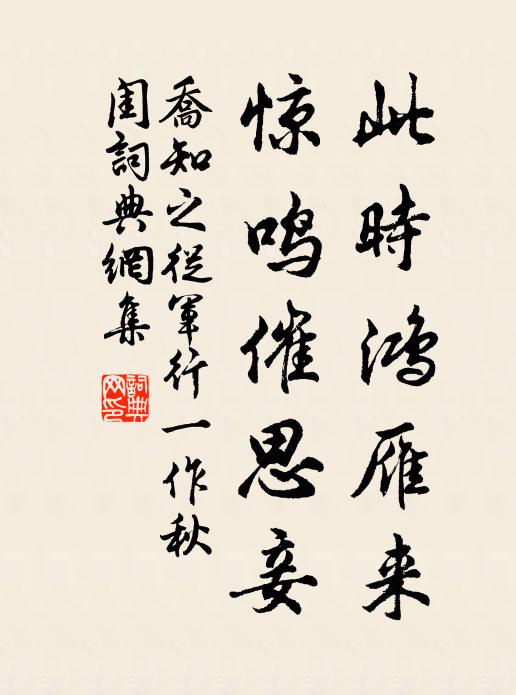 此時鴻雁来
惊鸣催思妾
喬知之從軍行一作秋
閨詞典網集
詞典网印